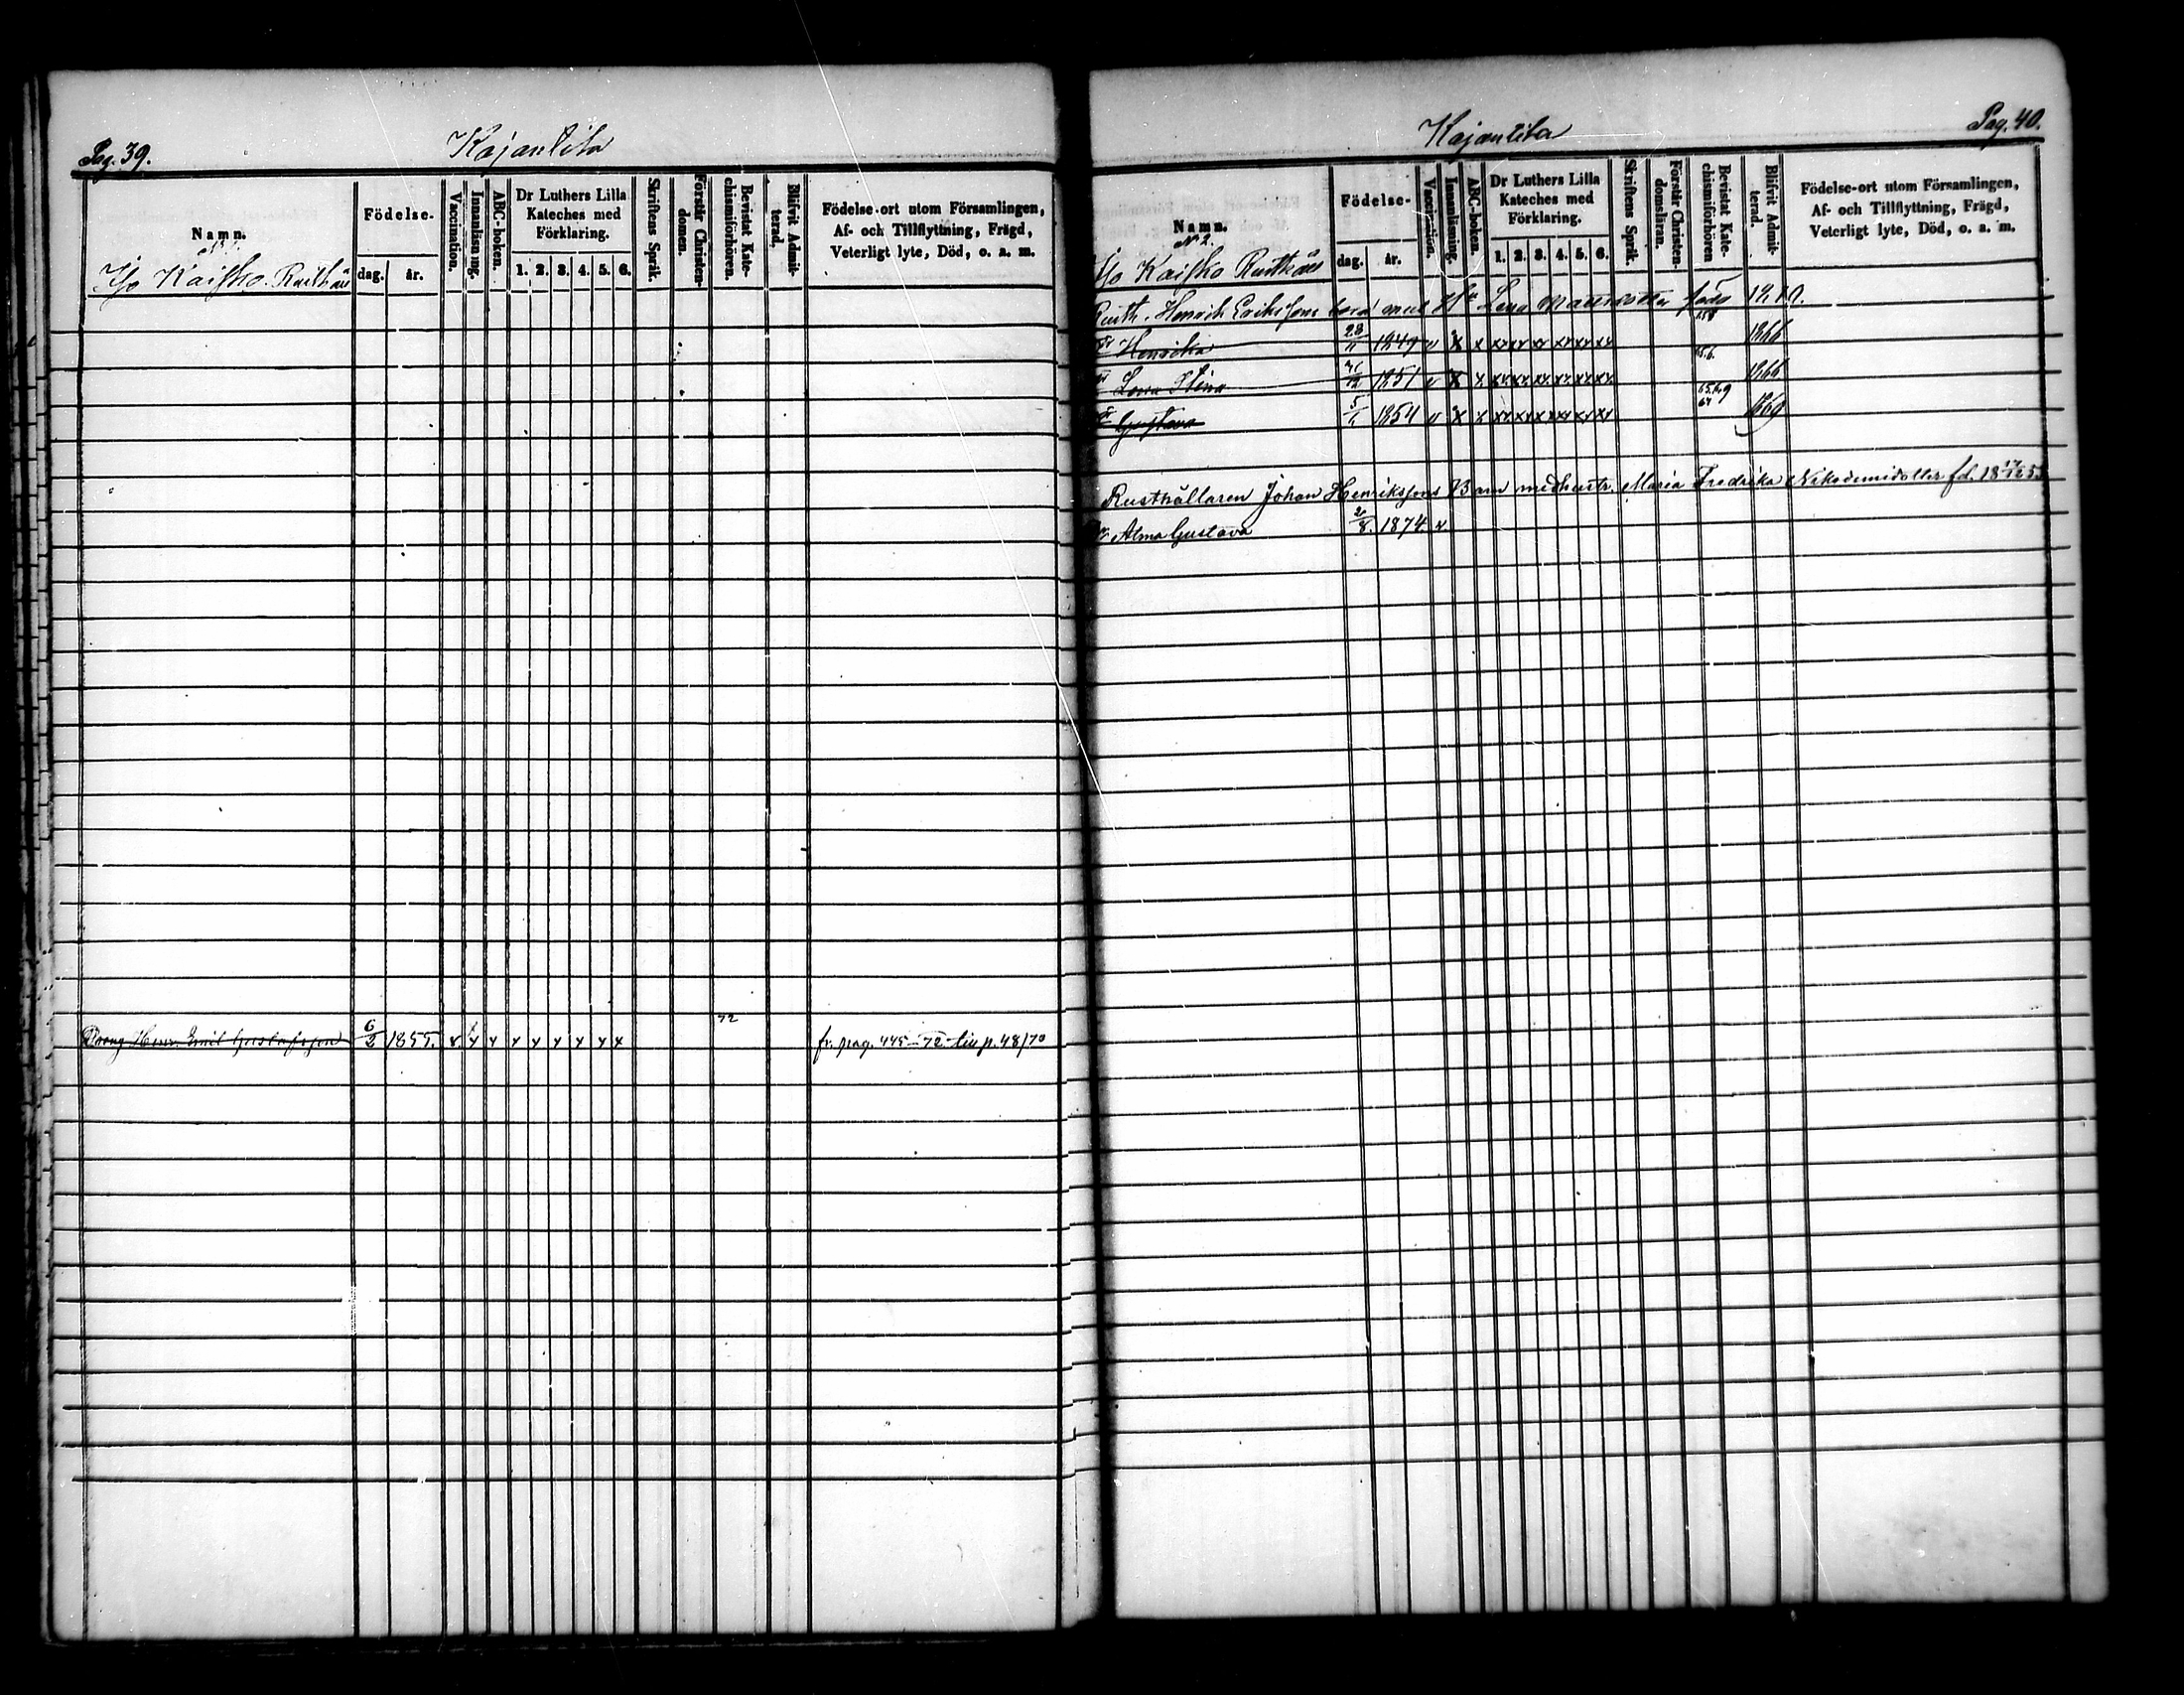 Pag. 39.
Kajanlita
Namn.
Födelse-
dag.
år.
Vaccination.
Innanläsning.
ABC-boken.
Dr Luthers Lilla
Kateches med
Förklaring.
1. 2. 3. 4. 5. 6.
Skriftens Språk.
Förstår Christen-
domen.
Bevistat Kate-
chismiförhören.
Blifvit Admit-
terad.
Födelse-ort utom Församlingen,
Af- och Tillflyttning, Frägd,
Veterligt lyte, Död, o. a. m.
Iso Kaisko Rusthåll
Dräng Henr. Emil Gustafsson 6/2 1855. x x x x x x x x x 72 fr. pag. 445 72 p. 48/70
Pag. 40.
Kajanlita
Namn.
No 2.
Födelse-
dag.
år.
Vaccination.
Innanläsning.
ABC-boken.
Dr Luthers Lilla
Kateches med
Förklaring.
1. 2. 3. 4. 5. 6.
Skriftens Språk.
Förstår Christen-
domsläran.
Bevistat Kate-
chismiförhören
Blifvit Admit-
terad.
Födelse-ort utom Församlingen,
Af- och Tillflyttning, Frägd,
Veterligt lyte, Död, o. a. m.
Iso Kaisko Rusthåll
Rusth. Henrik Erikssons barn med H Lena Mattsdotter
Henrika 28/11 1849 v x x xx xx xx xx xx xx 1866
Lovisa Stina 1851 v x x xx xx xx xx xx xx 1866
Gustava 5/1 1854 v x x xx xx xx xx xx xx 1869
Rusthållaren Johan Henrikssons Barn med hustr. Maria Fredrika Nikodemidotter fd.
Alma Gustava 2/8. 1874 v.